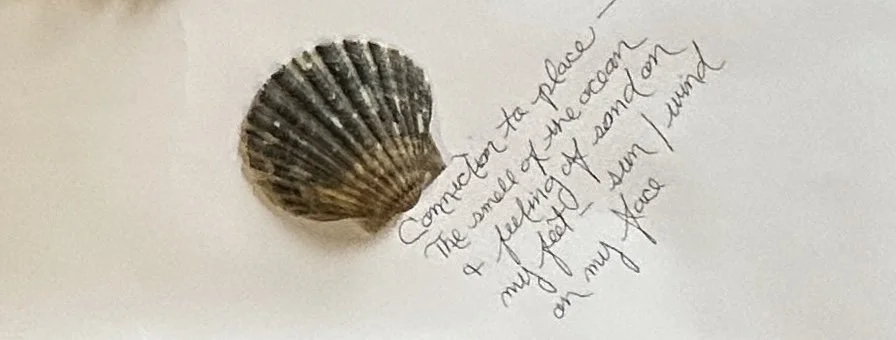 Connection to place –
The smell of the ocean
& feeling of sand on
my feet – sun / wind
on my face